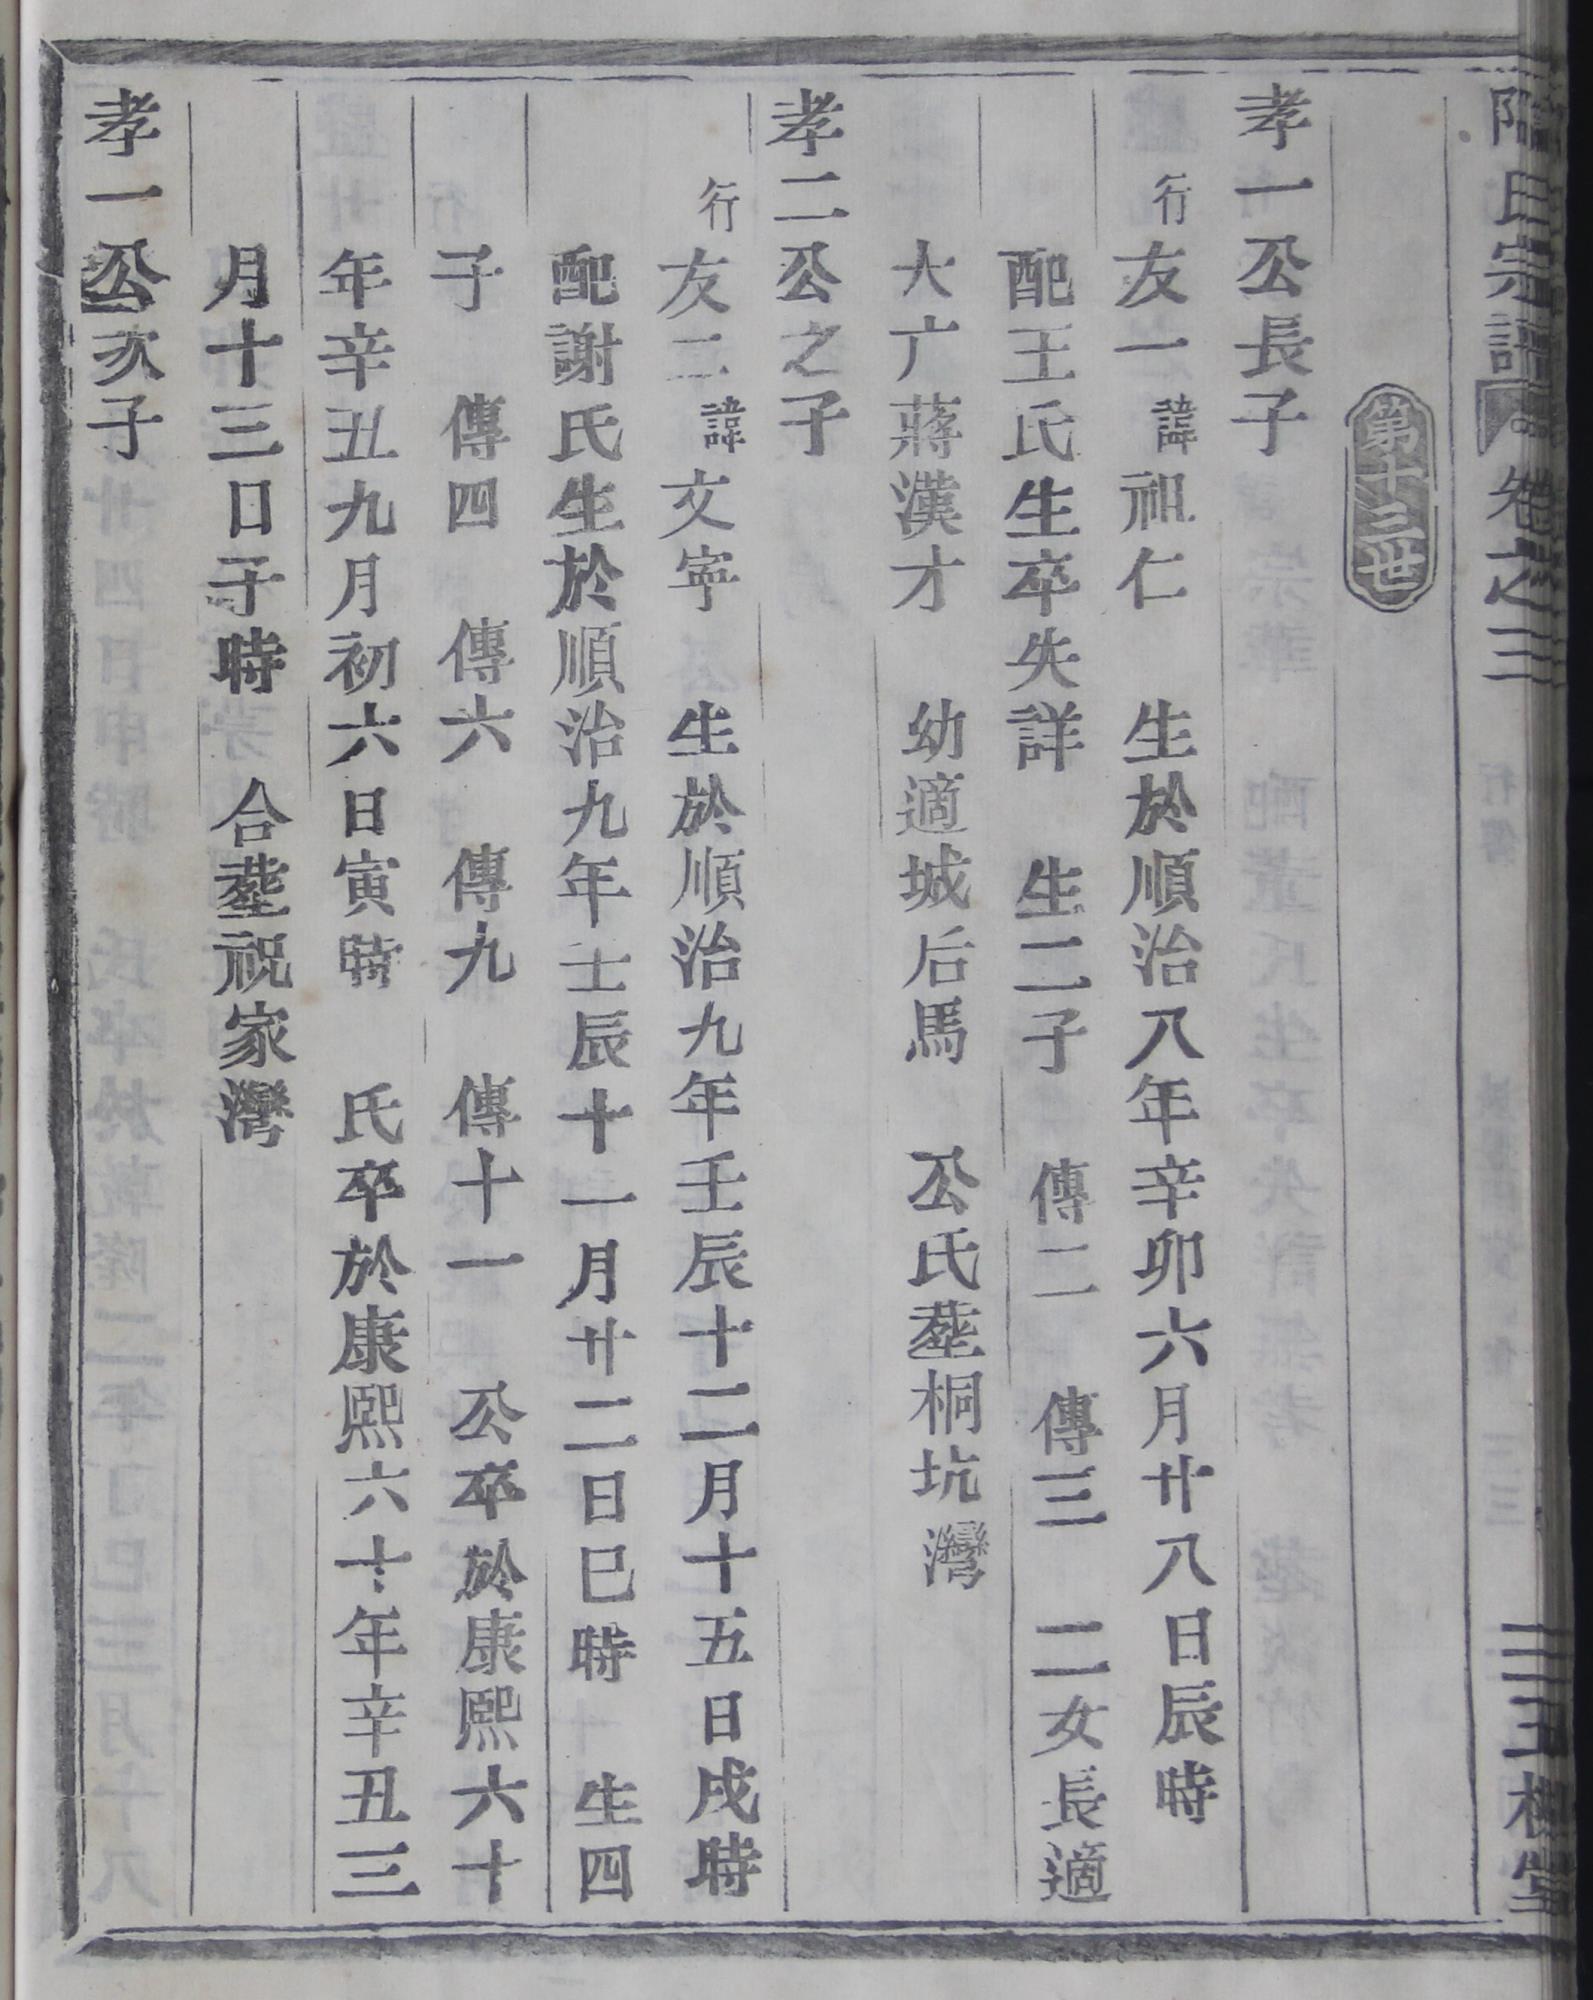 氏宗譜 卷之三 三槐堂
第十三世
孝一公長子
行友一諱祖仁 生於順治八年辛卯六月廿八日辰時
配王氏生卒失詳 生二子 傳二 傳三 二女長適
大亡蔣漢才 幼適城后馬 公氏塟桐坑灣
孝二公之子
行友二諱文寧 生於順治九年壬辰十二月十五日戌時
配謝氏生於順治九年壬辰十一月廿二日巳時 生四
子 傳四 傳六 傳九 傳十一 公卒於康熙六十
年辛丑九月初六日寅時 氏卒於康熙六十年辛丑三
月十三日子時 合塟祝家灣
孝一公次子